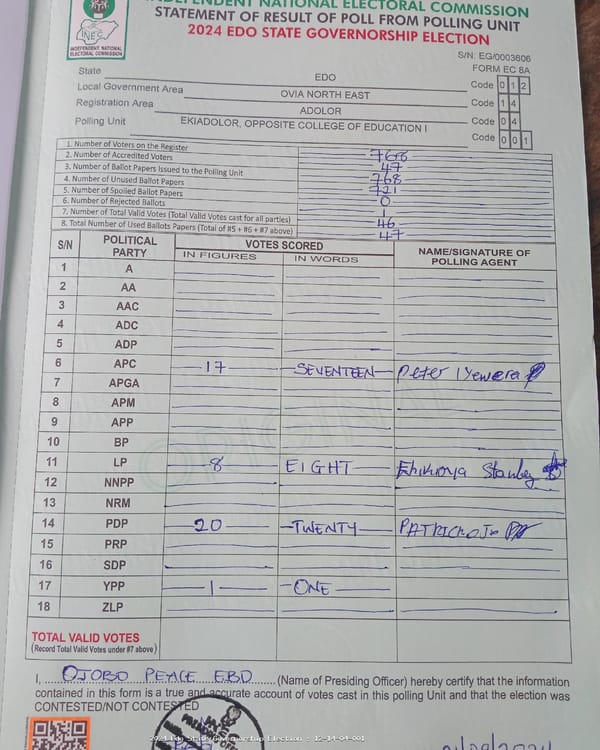 INDEPENDENT NATIONAL ELECTORAL COMMISSION
STATEMENT OF RESULT OF POLL FROM POLLING UNIT
2024 EDO STATE GOVERNORSHIP ELECTION
INEC
INDEPENDENT NATIONAL
ELECTORAL COMMISSION
S/N: EG/0003606
FORM EC 8A
State EDO Code 0 1 2
Local Government Area OVIA NORTH EAST Code 1 4
Registration Area ADOLOR Code 0 4
Polling Unit EKIADOLOR, OPPOSITE COLLEGE OF EDUCATION I Code 0 0 1
1. Number of Voters on the Register 768
2. Number of Accredited Voters 47
3. Number of Ballot Papers Issued to the Polling Unit 768
4. Number of Unused Ballot Papers 721
5. Number of Spoiled Ballot Papers 0
6. Number of Rejected Ballots 1
7. Number of Total Valid Votes (Total Valid Votes cast for all parties) 46
8. Total Number of Used Ballots Papers (Total of #5 + #6 + #7 above) 47
S/N POLITICAL PARTY VOTES SCORED NAME/SIGNATURE OF POLLING AGENT
IN FIGURES IN WORDS
1 A
2 AA
3 AAC
4 ADC
5 ADP
6 APC 17 SEVENTEEN Peter Iyewera
7 APGA
8 APM
9 APP
10 BP
11 LP 8 EIGHT Ehikioya Stanley
12 NNPP
13 NRM
14 PDP 20 TWENTY
15 PRP
16 SDP
17 YPP 1 ONE
18 ZLP
TOTAL VALID VOTES
(Record Total Valid Votes under #7 above)
I, OJOBO PEACE EBD (Name of Presiding Officer) hereby certify that the information
contained in this form is a true and accurate account of votes cast in this polling Unit and that the election was
CONTESTED/NOT CONTESTED
2024 Edo State Governorship Election : 12-14-04-001